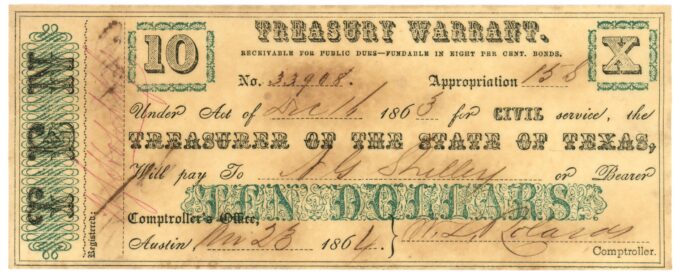 TREASURY WARRANT.
10
RECEIVABLE FOR PUBLIC DUES—FUNDABLE IN EIGHT PER CENT. BONDS.
X
No. 33908. Appropriation 158
Under Act of Dec 16 1863 for CIVIL service, the
TREASURER OF THE STATE OF TEXAS,
Will pay To N G Shelley or Bearer
TEN DOLLARS.
Comptroller's Office,
Austin, 23 1864.
Comptroller.
TEN
Registered: